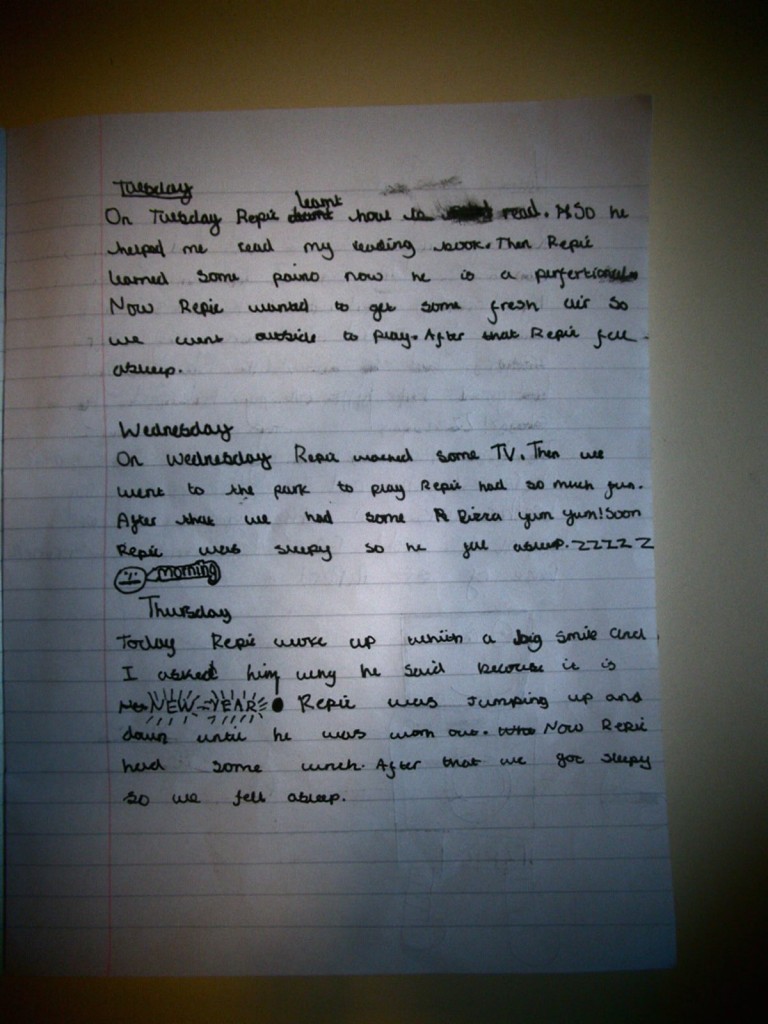 Tuesday
learnt
On Tuesday Repie how to read. So he
helped me read my reading book. Then Repie
learned some paino now he is a perfertional
Now Repie wanted to get some fresh air so
we went outside to play. After that Repie fell
asleep.
Wednesday
On Wednesday Repie wached some TV. Then we
went to the park to play Repie had so much fun.
After that we had some Pizza yum yum! Soon
Repie was sleepy so he fell asleep. ZZZZZ
morning
Thursday
Today Repie woke up whith a big smile and
I asked him why he said because it is
NEW-YEAR! Repie was jumping up and
down until he was worn out. Now Repie
had some lunch. After that we got sleepy
so we fell asleep.